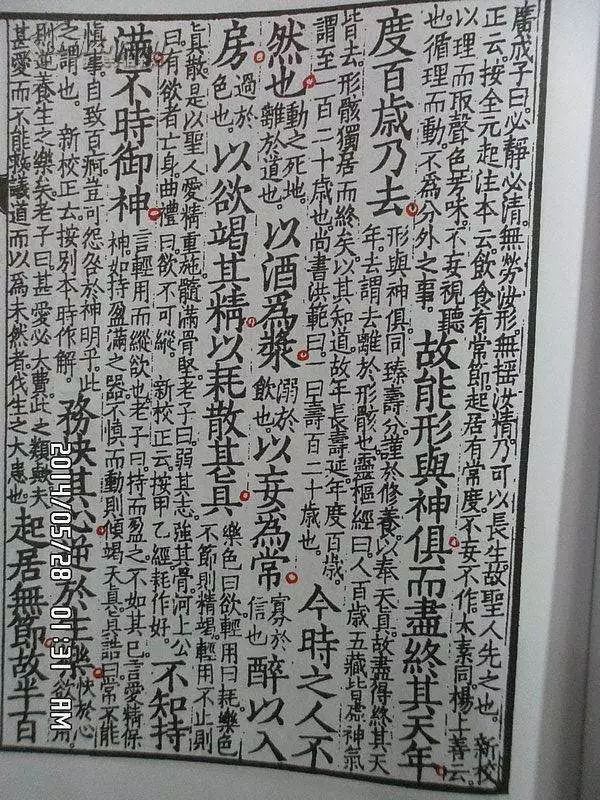 廣成子曰。必靜必清。無勞汝形。無搖汝精。乃可以長生。故聖人先之也。 新校
正云。按全元起注本云。飲食有常節。起居有常度。不妄不作。太素同。楊上善云。
以理而取聲色芳味。不妄視聽
也。循理而動。不為分外之事。
故能形與神俱而盡終其天年。
度百歲乃去。
形與神俱。同臻壽分。謹於修養。以奉天真。故盡得終其天
年。去謂去離於形骸也。靈樞經曰。人百歲。五藏皆虛。神氣
皆去。形骸獨居而終矣。以其知道。故年長壽延。年度百歲。
謂至一百二十歲也。尚書洪範曰。一曰壽百二十歲也。
今時之人不
然也。
動之死地。
離於道也。
以酒為漿。
溺於
飲也。
以妄為常。
寡於
信也。
醉以入
房。
過於
色也。
以欲竭其精。以耗散其真。
樂色曰欲。輕用曰耗。樂色
不節則精竭。輕用不止則
真散。是以聖人愛精重施。髓滿骨堅。老子曰。弱其志。強其骨。河上公
曰。有欲者亡身。曲禮曰。欲不可縱。 新校正云。按甲乙經耗作好。
不知持
滿。不時御神。
言輕用而縱欲也。老子曰。持而盈之。不如其已。言愛精保
神。如持盈滿之器。不慎而動。則傾竭天真。真誥曰。常不能
慎事。自致百痾。豈可怨咎於神明乎。此
之謂也。 新校正云。按別本時作解。
務快其心。逆於生樂。
快於心
欲之用。
則逆養生之樂矣。老子曰。甚愛必大費。此之類歟。夫
甚愛而不能救。議道而以為未然者。伐生之大患也。
起居無節。故半百
2014/05/28 01:31 AM